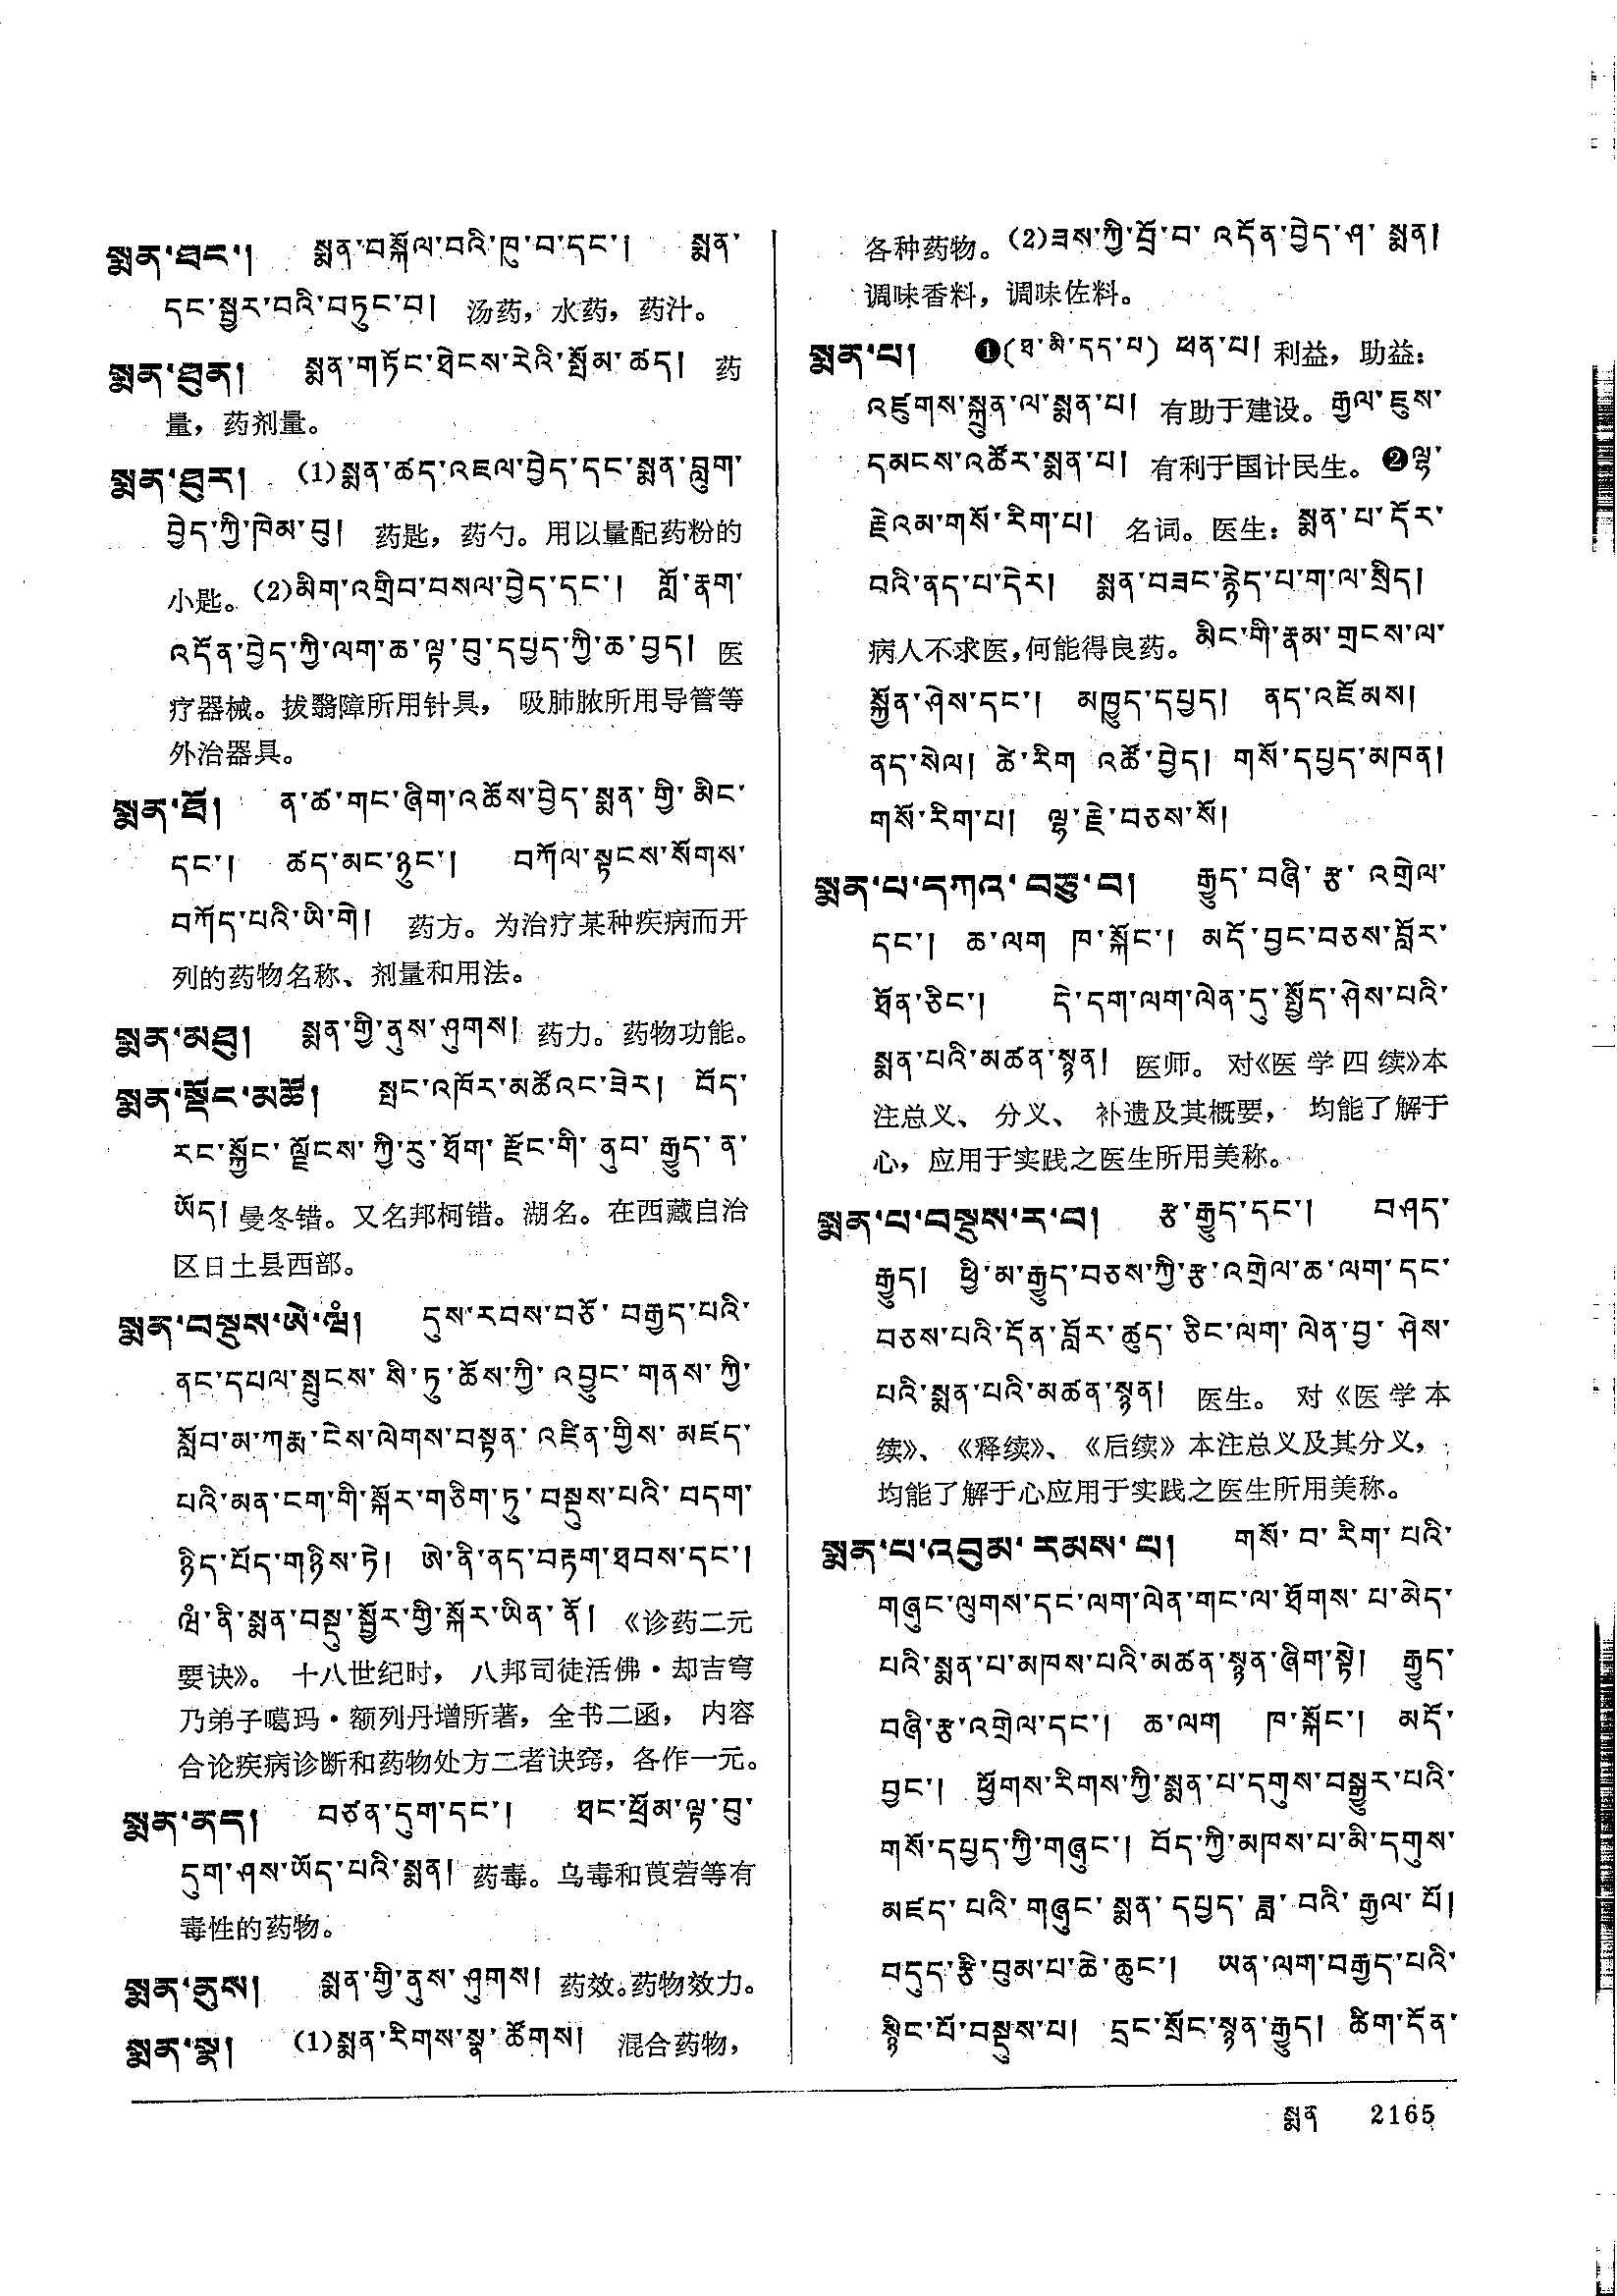 སྨན་ཐང་། སྨན་བསྐོལ་བའི་ཁུ་བ་དང་། སྨན་
དང་སྦྱར་བའི་བཏུང་བ། 汤药，水药，药汁。
སྨན་ཐུན། སྨན་གཏོང་ཐེངས་རེའི་སྤོམ་ཚད། 药
量，药剂量。
སྨན་ཐུར། (1)སྨན་ཚད་འཇལ་བྱེད་དང་སྨན་བླུག་
བྱེད་ཀྱི་ཁེམ་བུ། 药匙，药勺。用以量配药粉的
小匙。(2)མིག་འགྲིབ་བསལ་བྱེད་དང་། གློ་རྣག་
འདོན་བྱེད་ཀྱི་ལག་ཆ་ལྟ་བུ་དཔྱད་ཀྱི་ཆ་བྱད། 医
疗器械。拔翳障所用针具，吸肺脓所用导管等
外治器具。
སྨན་ཐོ། ན་ཚ་གང་ཞིག་འཆོས་བྱེད་སྨན་གྱི་མིང་
དང་། ཚད་མང་ཉུང་། བཀོལ་སྟངས་སོགས་
བཀོད་པའི་ཡི་གེ། 药方。为治疗某种疾病而开
列的药物名称、剂量和用法。
སྨན་མཐུ། སྨན་གྱི་ནུས་ཤུགས། 药力。药物功能。
སྨན་སྡོང་མཚོ། སྤང་འཁོར་མཚོའང་ཟེར། བོད་
རང་སྐྱོང་ལྗོངས་ཀྱི་རུ་ཐོག་རྫོང་གི་ནུབ་རྒྱུད་ན་
ཡོད། 曼冬错。又名邦柯错。湖名。在西藏自治
区日土县西部。
སྨན་བསྡུས་ཨེ་ཝཾ། དུས་རབས་བཅོ་བརྒྱད་པའི་
ནང་དཔལ་སྤུངས་སི་ཏུ་ཆོས་ཀྱི་འབྱུང་གནས་ཀྱི་
སློབ་མ་ཀརྨ་ངེས་ལེགས་བསྟན་འཛིན་གྱིས་མཛད་
པའི་མན་ངག་གི་སྐོར་གཅིག་ཏུ་བསྡུས་པའི་བདག་
ཉིད་པོད་གཉིས་ཏེ། ཨེ་ནི་ནད་བརྟག་ཐབས་དང་།
ཝཾ་ནི་སྨན་བསྡུ་སྦྱོར་གྱི་སྐོར་ཡིན་ནོ། 《诊药二元
要诀》。十八世纪时，八邦司徒活佛·却吉穹
乃弟子噶玛·额列丹增所著，全书二函，内容
合论疾病诊断和药物处方二者诀窍，各作一元。
སྨན་ནད། བཙན་དུག་དང་། ཐང་ཕྲོམ་ལྟ་བུ་
དུག་ཤས་ཡོད་པའི་སྨན། 药毒。乌毒和莨菪等有
毒性的药物。
སྨན་ནུས། སྨན་གྱི་ནུས་ཤུགས། 药效。药物效力。
སྨན་སྣ། (1)སྨན་རིགས་སྣ་ཚོགས། 混合药物，
各种药物。(2)ཟས་ཀྱི་བྲོ་བ་འདོན་བྱེད་ཤ་སྨན།
调味香料，调味佐料。
སྨན་པ། ❶(ཐ་མི་དད་པ) ཕན་པ། 利益，助益：
འཛུགས་སྐྲུན་ལ་སྨན་པ། 有助于建设。རྒྱལ་ཇུས་
དམངས་འཚོར་སྨན་པ། 有利于国计民生。❷ལྷ་
རྗེའམ་གསོ་རིག་པ། 名词。医生：སྨན་པ་དོར་
བའི་ནད་པ་དེར། སྨན་བཟང་རྙེད་པ་ག་ལ་སྲིད།
病人不求医，何能得良药。མིང་གི་རྣམ་གྲངས་ལ་
སྐྱོན་ཤེས་དང་། མཁྱུད་དཔྱད། ནད་འཇོམས།
ནད་སེལ། ཚེ་རིག འཚོ་བྱེད། གསོ་དཔྱད་མཁན།
གསོ་རིག་པ། ལྷ་རྗེ་བཅས་སོ།
སྨན་པ་དཀའ་བཅུ་བ། རྒྱུད་བཞི་རྩ་འགྲེལ་
དང་། ཆ་ལག ཁ་སྐོང་། མདོ་བྱང་བཅས་བློར་
ཐོན་ཅིང་། དེ་དག་ལག་ལེན་དུ་སྤྱོད་ཤེས་པའི་
སྨན་པའི་མཚན་སྙན། 医师。对《医学四续》本
注总义、分义、补遗及其概要，均能了解于
心，应用于实践之医生所用美称。
སྨན་པ་བསྡུས་ར་བ། རྩ་རྒྱུད་དང་། བཤད་
རྒྱུད། ཕྱི་མ་རྒྱུད་བཅས་ཀྱི་རྩ་འགྲེལ་ཆ་ལག་དང་
བཅས་པའི་དོན་བློར་ཚུད་ཅིང་ལག་ལེན་བྱ་ཤེས་
པའི་སྨན་པའི་མཚན་སྙན། 医生。对《医学本
续》、《释续》、《后续》本注总义及其分义，
均能了解于心应用于实践之医生所用美称。
སྨན་པ་འབུམ་རམས་པ། གསོ་བ་རིག་པའི་
གཞུང་ལུགས་དང་ལག་ལེན་གང་ལ་ཐོགས་པ་མེད་
པའི་སྨན་པ་མཁས་པའི་མཚན་སྙན་ཞིག་སྟེ། རྒྱུད་
བཞི་རྩ་འགྲེལ་དང་། ཆ་ལག ཁ་སྐོང་། མདོ་
བྱང་། ཕྱོགས་རིགས་ཀྱི་སྨན་པ་དགུས་བསྒྱུར་པའི་
གསོ་དཔྱད་ཀྱི་གཞུང་། བོད་ཀྱི་མཁས་པ་མི་དགུས་
མཛད་པའི་གཞུང་སྨན་དཔྱད་ཟླ་བའི་རྒྱལ་པོ།
བདུད་རྩི་བུམ་པ་ཆེ་ཆུང་། ཡན་ལག་བརྒྱད་པའི་
སྙིང་པོ་བསྡུས་པ། དྲང་སྲོང་སྙན་རྒྱུད། ཚིག་དོན་
སྨན 2165